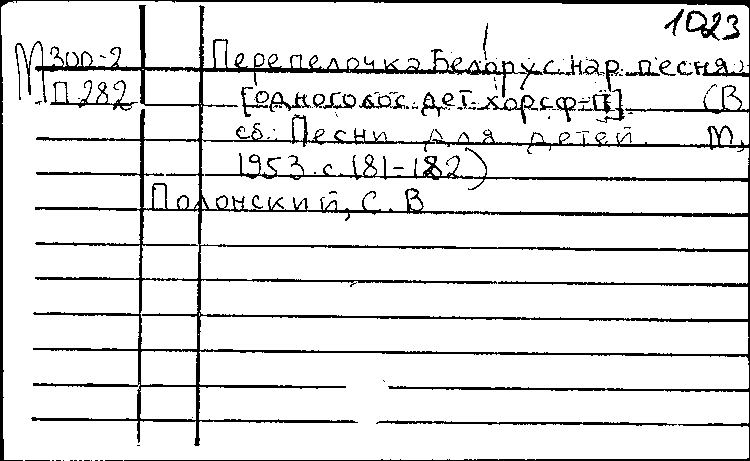 1023
М 300-2 Перепелочка Белорус. нар. песня.
П 282 [одноголос. дет. хор с ф-п] (В
сб: Песни для детей. М,
1953. с. 181-182)
Полонский, С. В